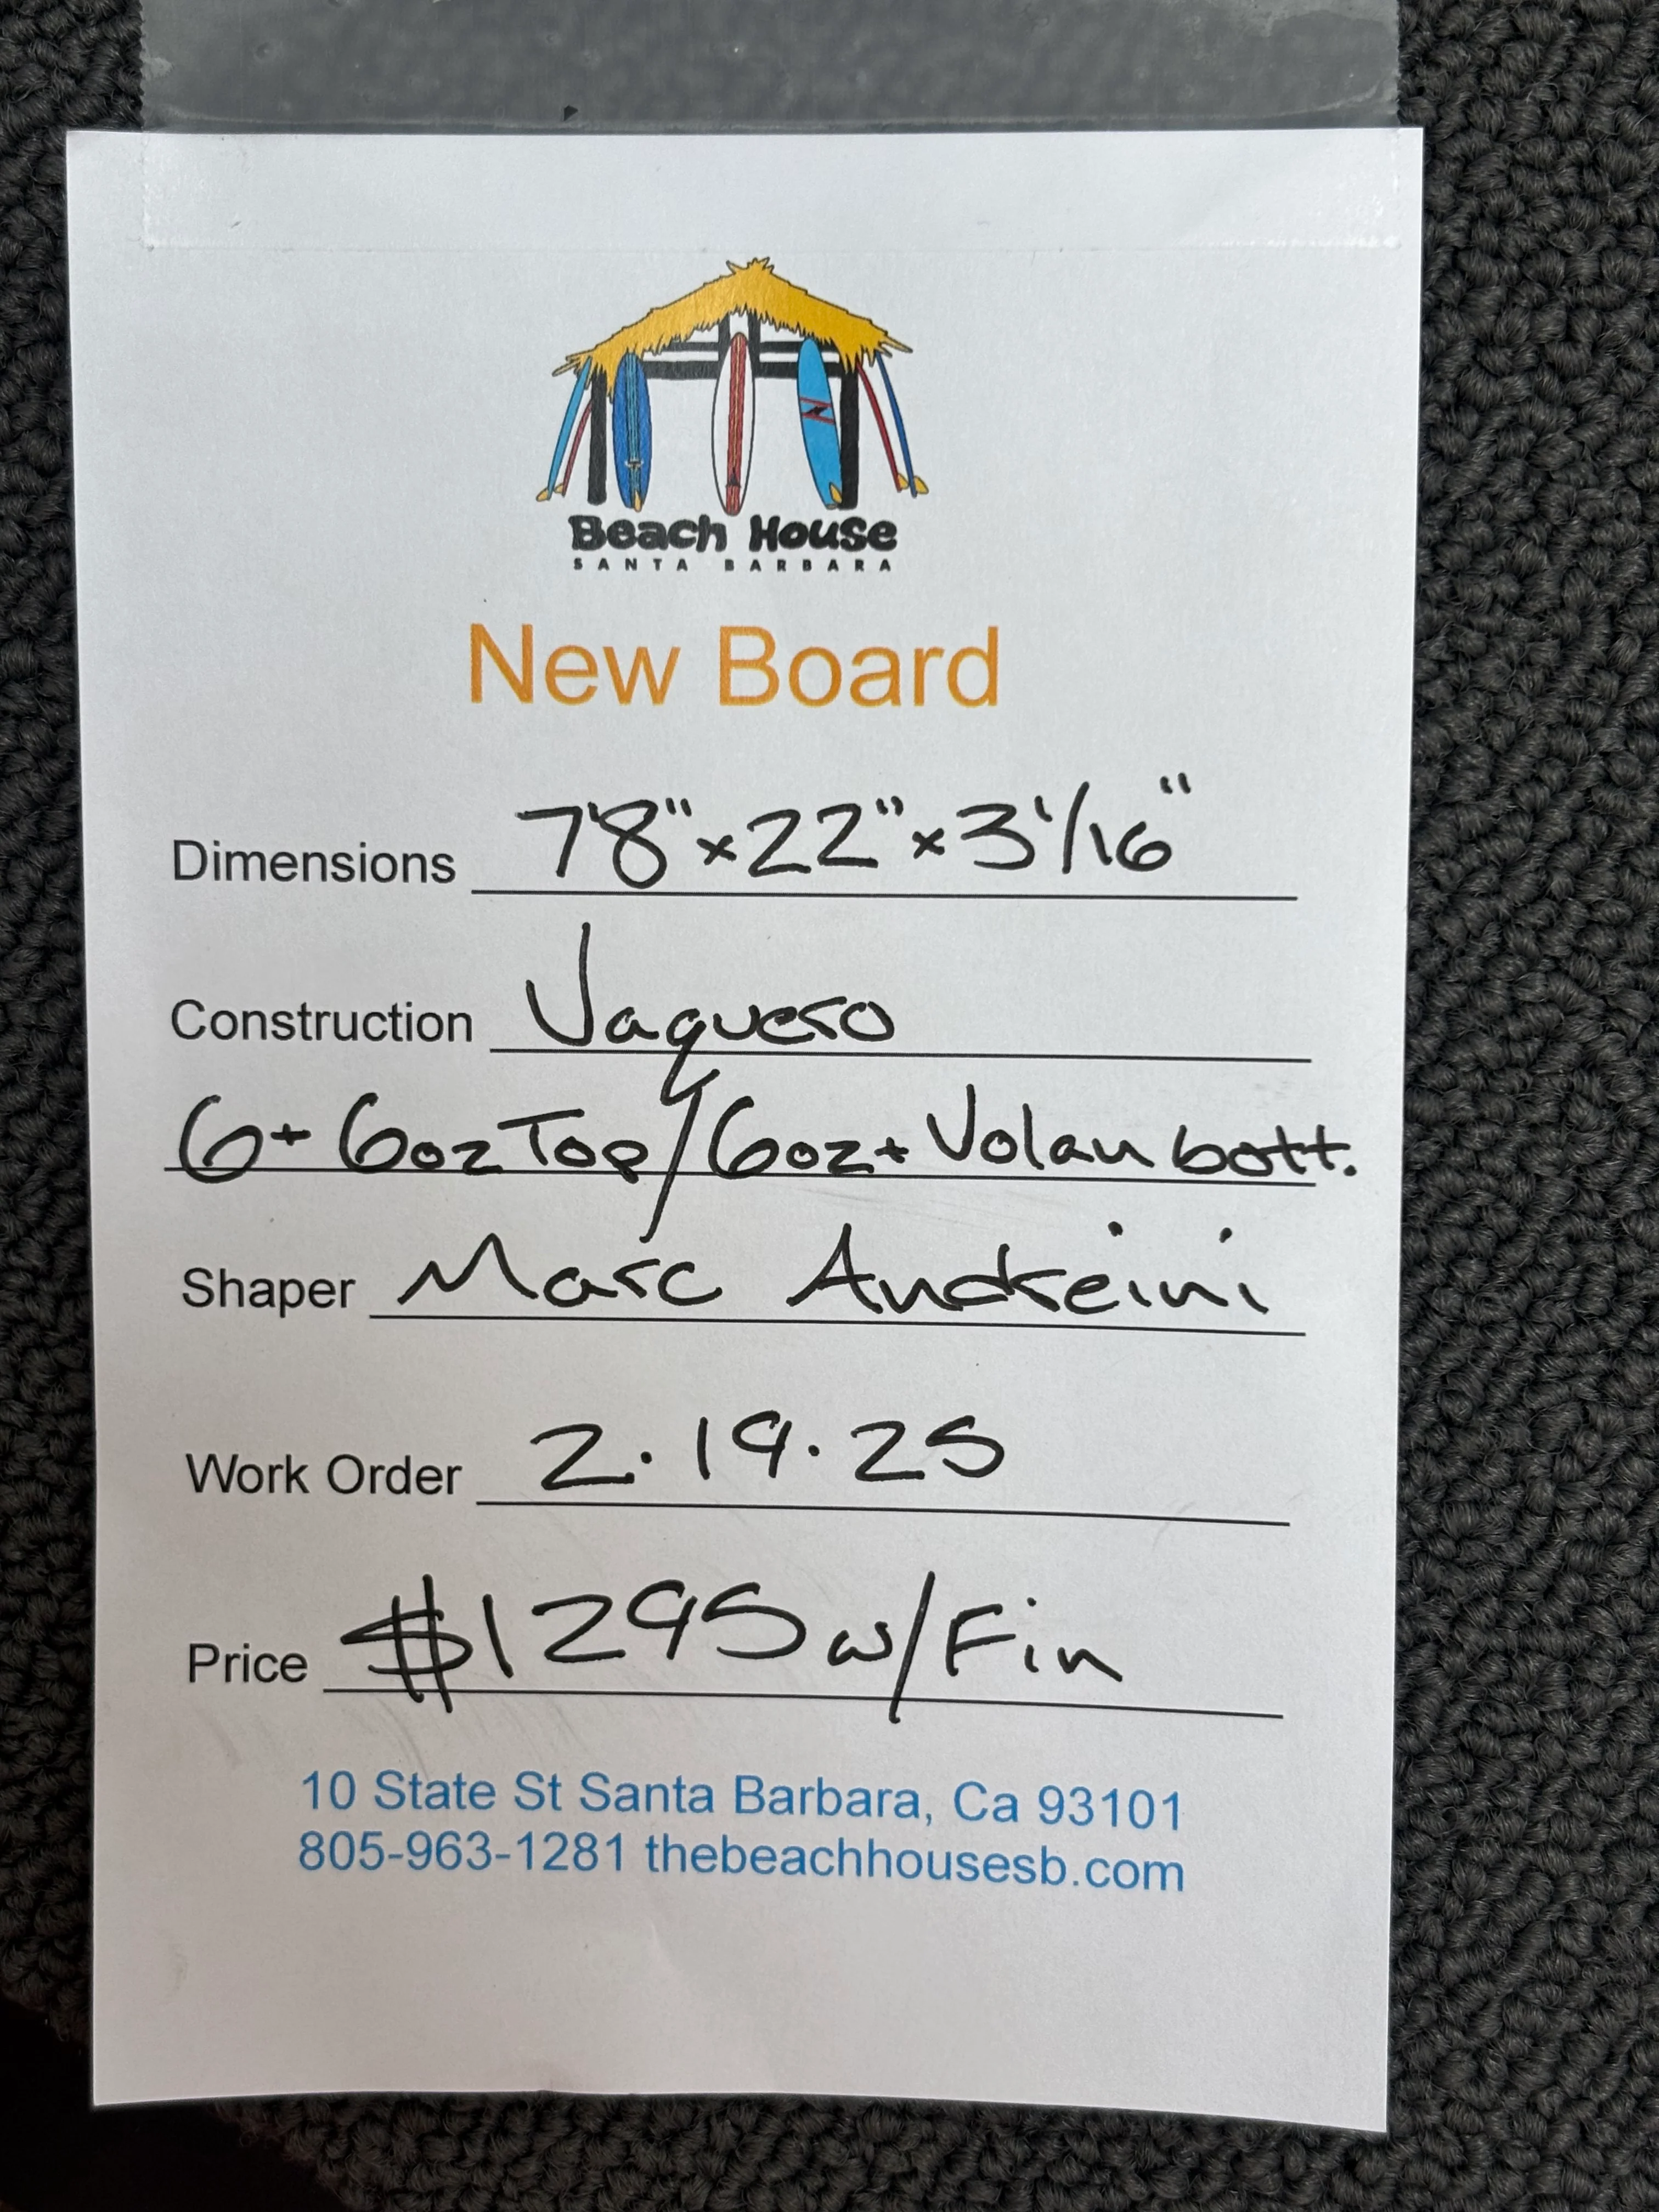 Beach House
SANTA BARBARA
New Board
Dimensions 7'8" x 22" x 3 1/16"
Construction Vaquero
6+6oz Top/6oz+Volan bott.
Shaper Marc Andreini
Work Order 2.19.25
Price $1295 w/Fin
10 State St Santa Barbara, Ca 93101
805-963-1281 thebeachhousesb.com